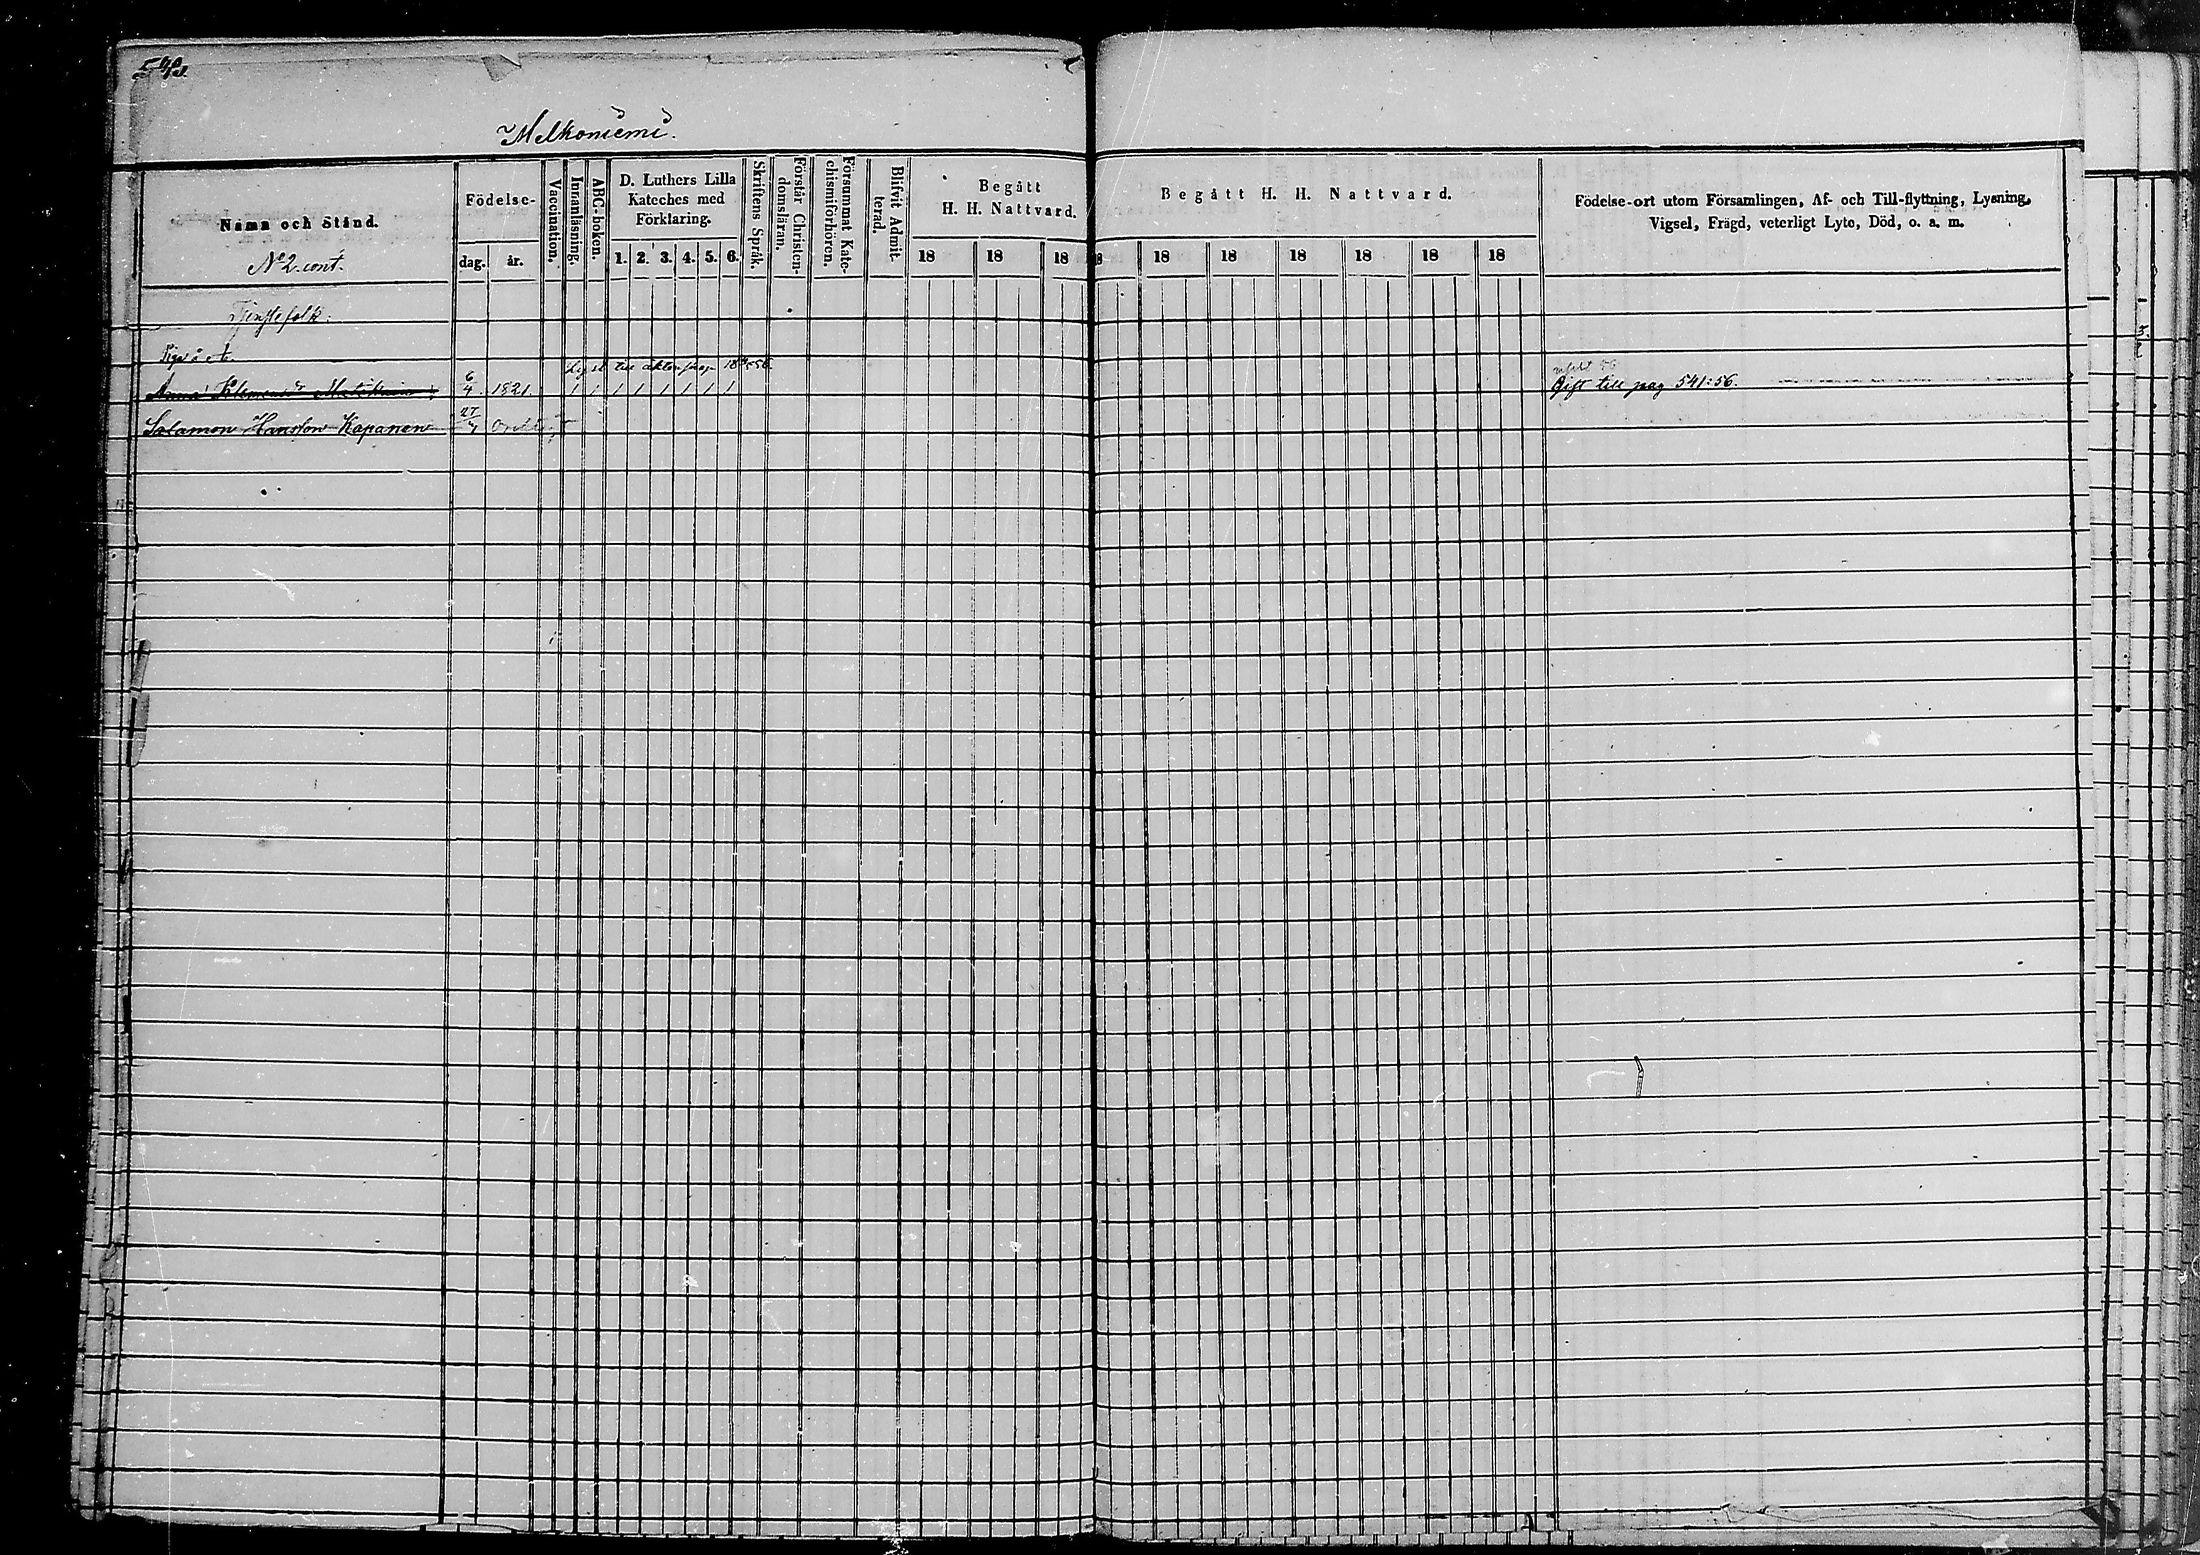 Melkoniemi.
Namn och Stånd.
No 2. cont.
Födelse-
dag. år.
Vaccination.
Innanläsning.
ABC-boken.
D. Luthers Lilla
Kateches med
Förklaring.
1. 2. 3. 4. 5. 6.
Skriftens Språk.
Förstår Christen-
domsläran.
Försummat Kate-
chismiförhören.
Blifvit Admit-
terad.
Begått
H. H. Nattvard.
18 18 18
Begått H. H. Nattvard.
8 18 18 18 18 18 18
Födelse-ort utom Församlingen, Af- och Till-flyttning, Lysning,
Vigsel, Frägd, veterligt Lyte, Död, o. a. m.
Tjenstefolk:
Lyst till äktenskap
Anna 6/4 1821. 1 1 1 1 1 1 1 1 Gift till pag 541:56.
Salamon Hansson Kapanen 27/7